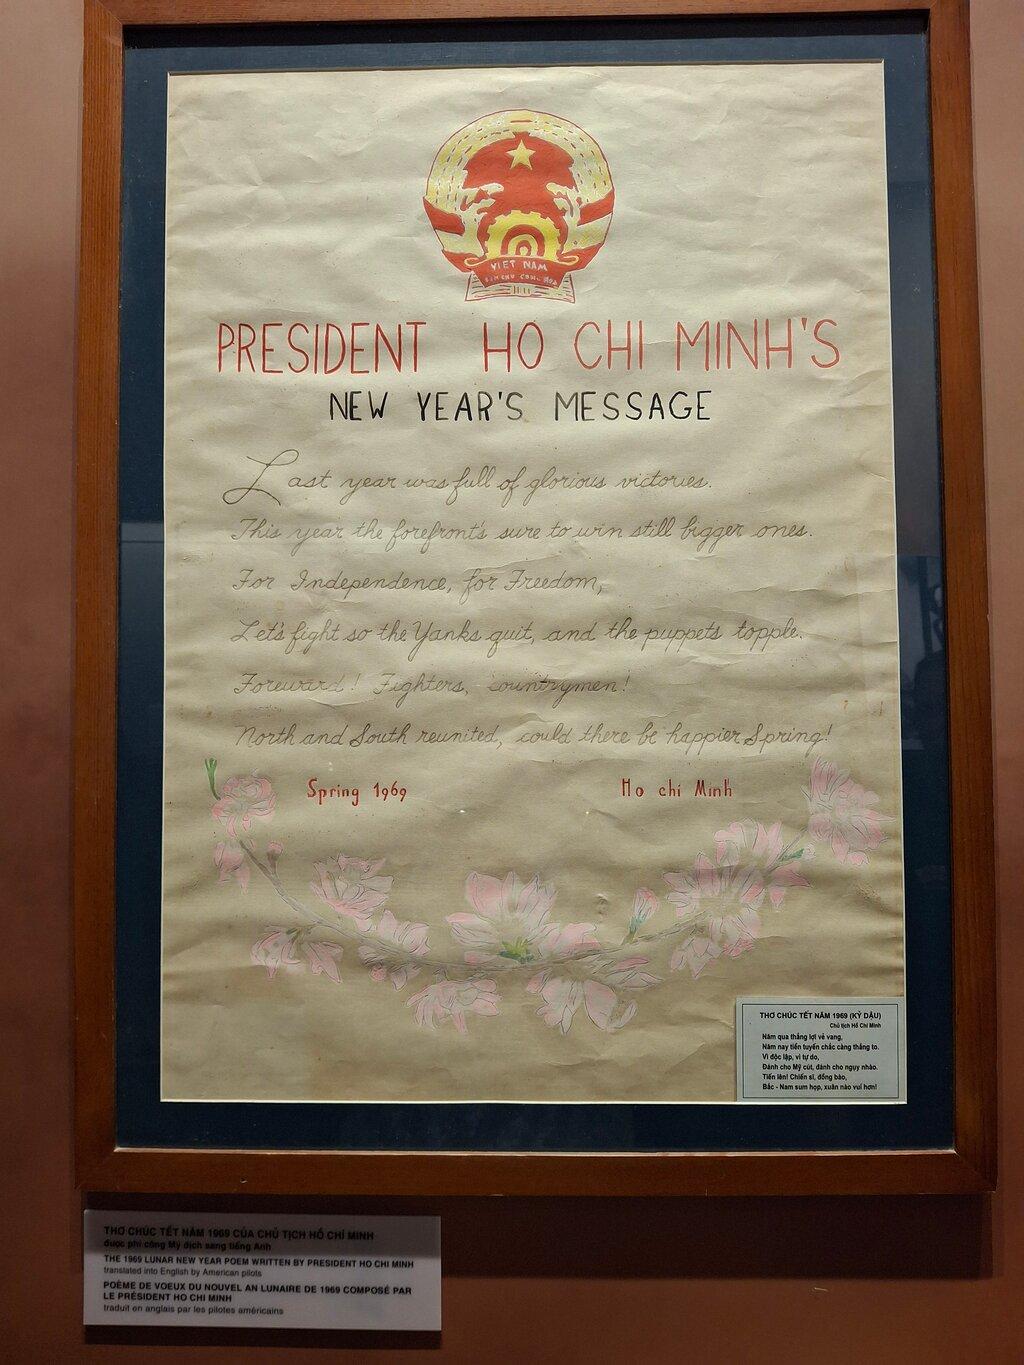 VIET NAM
PRESIDENT HO CHI MINH'S
NEW YEAR'S MESSAGE
Last year was full of glorious victories.
This year the forefront's sure to win still bigger ones.
For Independence, for Freedom,
Let's fight so the Yanks quit, and the puppets topple.
Foreward! Fighters, countrymen!
North and South reunited, could there be happier Spring!
Spring 1969 Ho chi Minh
THƠ CHÚC TẾT NĂM 1969 (KỶ DẬU)
Chủ tịch Hồ Chí Minh
Năm qua thắng lợi vẻ vang,
Năm nay tiền tuyến chắc càng thắng to.
Vì độc lập, vì tự do,
Đánh cho Mỹ cút, đánh cho ngụy nhào.
Tiến lên! Chiến sĩ, đồng bào,
Bắc - Nam sum họp, xuân nào vui hơn!
THƠ CHÚC TẾT NĂM 1969 CỦA CHỦ TỊCH HỒ CHÍ MINH
được phi công Mỹ dịch sang tiếng Anh
THE 1969 LUNAR NEW YEAR POEM WRITTEN BY PRESIDENT HO CHI MINH
translated into English by American pilots
POÈME DE VOEUX DU NOUVEL AN LUNAIRE DE 1969 COMPOSÉ PAR
LE PRÉSIDENT HO CHI MINH
traduit en anglais par les pilotes américains